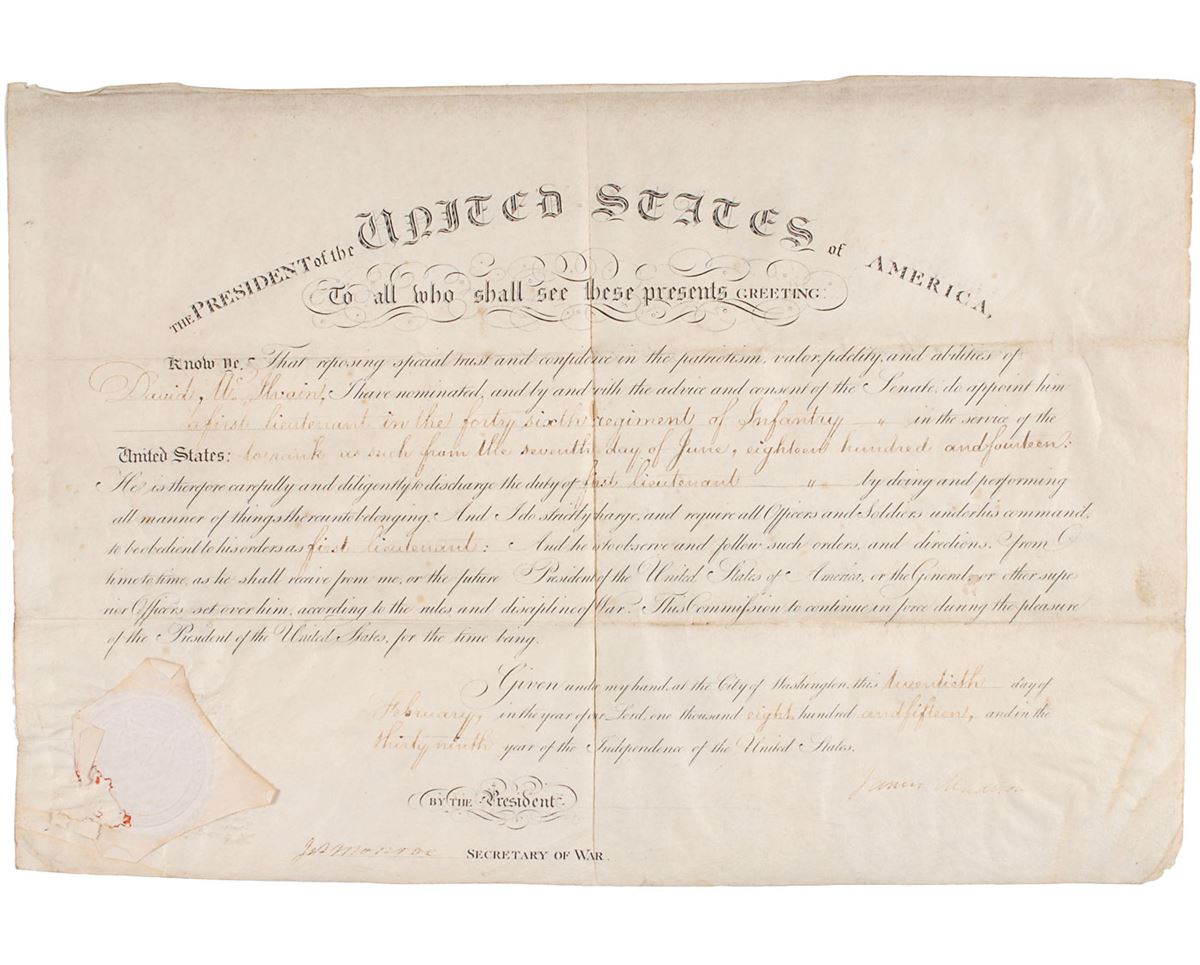 THE PRESIDENT of the UNITED STATES of AMERICA,
To all who shall see these presents GREETING:
Know ye, That reposing special trust and confidence in the patriotism, valor, fidelity, and abilities of
David, Mc Ilvain, I have nominated, and by and with the advice and consent of the Senate, do appoint him
a first lieutenant in the forty sixth regiment of Infantry " in the service of the
United States: to rank as such from the seventh day of June, eighteen hundred and fourteen:
He is therefore carefully and diligently to discharge the duty of first lieutenant " by doing and performing
all manner of things thereunto belonging. And I do strictly charge, and require all Officers and Soldiers under his command,
to be obedient to his orders as first lieutenant: And he is to observe and follow such orders, and directions, from
time to time, as he shall receive from me, or the future President of the United States of America, or the General, or other supe
rior Officers set over him, according to the rules and discipline of War. This Commission to continue in force during the pleasure
of the President of the United States, for the time being.
Given under my hand, at the City of Washington, this twentieth day of
February, in the year of our Lord, one thousand eight hundred and fifteen, and in the
thirty ninth year of the Independence of the United States.
James Madison
BY THE President
Jas Monroe SECRETARY OF WAR.